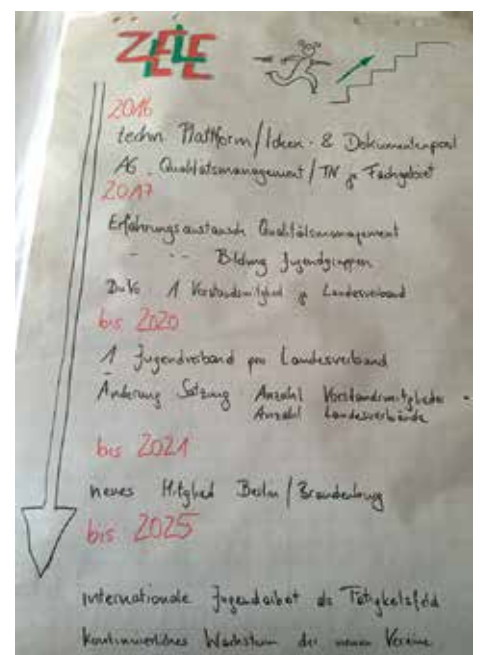 ZIELE
2016
techn. Plattform/Ideen- & Dokumentenpool
AG Qualitätsmanagement/TN je Fachgebiet
2017
Erfahrungsaustausch Qualitätsmanagement
- " - Bildung Jugendgruppen
1 Vorstandsmitglied je Landesverband
bis 2020
1 Jugendverband pro Landesverband
Änderung Satzung Anzahl Vorstandsmitglieder -
Anzahl Landesverbände
bis 2021
neues Mitglied Berlin/Brandenburg
bis 2025
internationale Jugendarbeit als Tätigkeitsfeld
kontinuierliches Wachstum der neuen Vereine